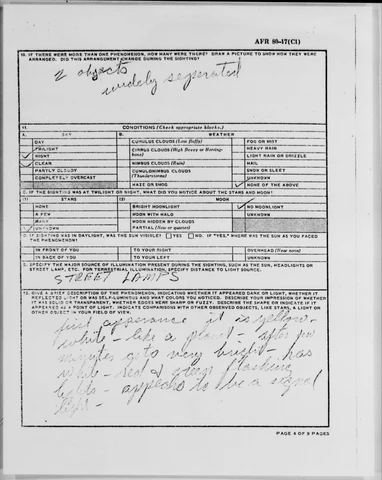 AFR 80-17(C1)
10. IF THERE WERE MORE THAN ONE PHENOMENON, HOW MANY WERE THERE? DRAW A PICTURE TO SHOW HOW THEY WERE
ARRANGED. DID THIS ARRANGEMENT CHANGE DURING THE SIGHTING?
2 objects
widely seperated
11. CONDITIONS (Check appropriate blocks.)
A. SKY B. WEATHER
DAY CUMULUS CLOUDS (Low fluffy) FOG OR MIST
TWILIGHT CIRRUS CLOUDS (High fleecy or Herring-bone) HEAVY RAIN
NIGHT LIGHT RAIN OR DRIZZLE
CLEAR NIMBUS CLOUDS (Rain) HAIL
PARTLY CLOUDY CUMULONIMBUS CLOUDS (Thunderstorms) SNOW OR SLEET
COMPLETELY OVERCAST UNKNOWN
HAZE OR SMOG NONE OF THE ABOVE
C. IF THE SIGHTING WAS AT TWILIGHT OR NIGHT, WHAT DID YOU NOTICE ABOUT THE STARS AND MOON?
(1) STARS (2) MOON
NONE BRIGHT MOONLIGHT NO MOONLIGHT
A FEW MOON WITH HALO UNKNOWN
MANY MOON HIDDEN BY CLOUDS
UNKNOWN PARTIAL (New or quarter)
D. IF SIGHTING WAS IN DAYLIGHT, WAS THE SUN VISIBLE? YES NO. IF "YES," WHERE WAS THE SUN AS YOU FACED
THE PHENOMENON?
IN FRONT OF YOU TO YOUR RIGHT OVERHEAD (Near noon)
IN BACK OF YOU TO YOUR LEFT UNKNOWN
E. SPECIFY THE MAJOR SOURCE OF ILLUMINATION PRESENT DURING THE SIGHTING, SUCH AS THE SUN, HEADLIGHTS OR
STREET LAMP, ETC. FOR TERRESTRIAL ILLUMINATION, SPECIFY DISTANCE TO LIGHT SOURCE.
STREET LAMPS
12. GIVE A BRIEF DESCRIPTION OF THE PHENOMENON, INDICATING WHETHER IT APPEARED DARK OR LIGHT, WHETHER IT
REFLECTED LIGHT OR WAS SELF-LUMINOUS AND WHAT COLORS YOU NOTICED. DESCRIBE YOUR IMPRESSION OF WHETHER
IT WAS SOLID OR TRANSPARENT, WHETHER EDGES WERE SHARP OR FUZZY. DESCRIBE THE SHAPE OR INDICATE IF IT
APPEARED AS A POINT OF LIGHT. INDICATE COMPARISONS WITH OTHER OBSERVED OBJECTS, LIKE STARS, A LIGHT OR
OTHER OBJECT IN YOUR FIELD OF VIEW.
first appearance it is yellow-
white - like a planet - after few
minutes gets very bright - has
white - red & green flashing
lights - appeared to be a signal
light -
PAGE 4 OF 9 PAGES